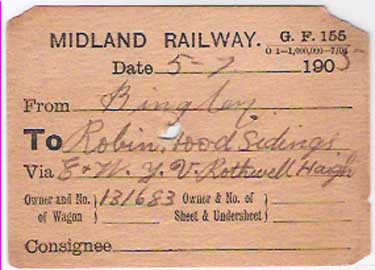 MIDLAND RAILWAY. G. F. 155
O 1-1,000,000-7/04
Date 5-7 1905
From Bingley
To Robin Hood Sidings
Via E & W. Y. V. Rothwell Haigh
Owner and No. of Wagon } 131683 Owner & No. of Sheet & Undersheet }
Consignee